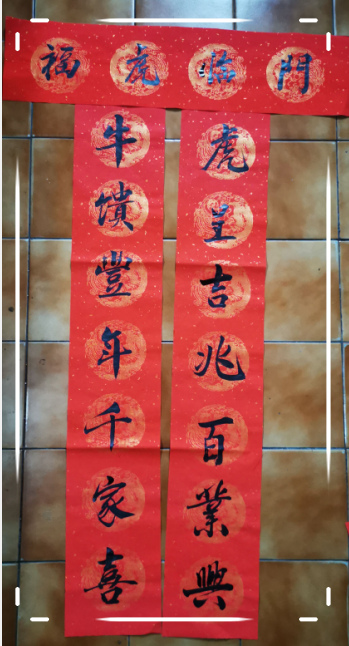 福虎臨門
牛馈豐年千家喜
虎呈吉兆百業興